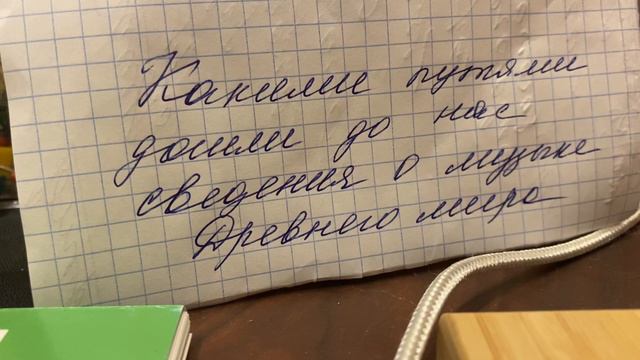 Какими путями
дошли до нас
сведения о музыке
Древнего мира